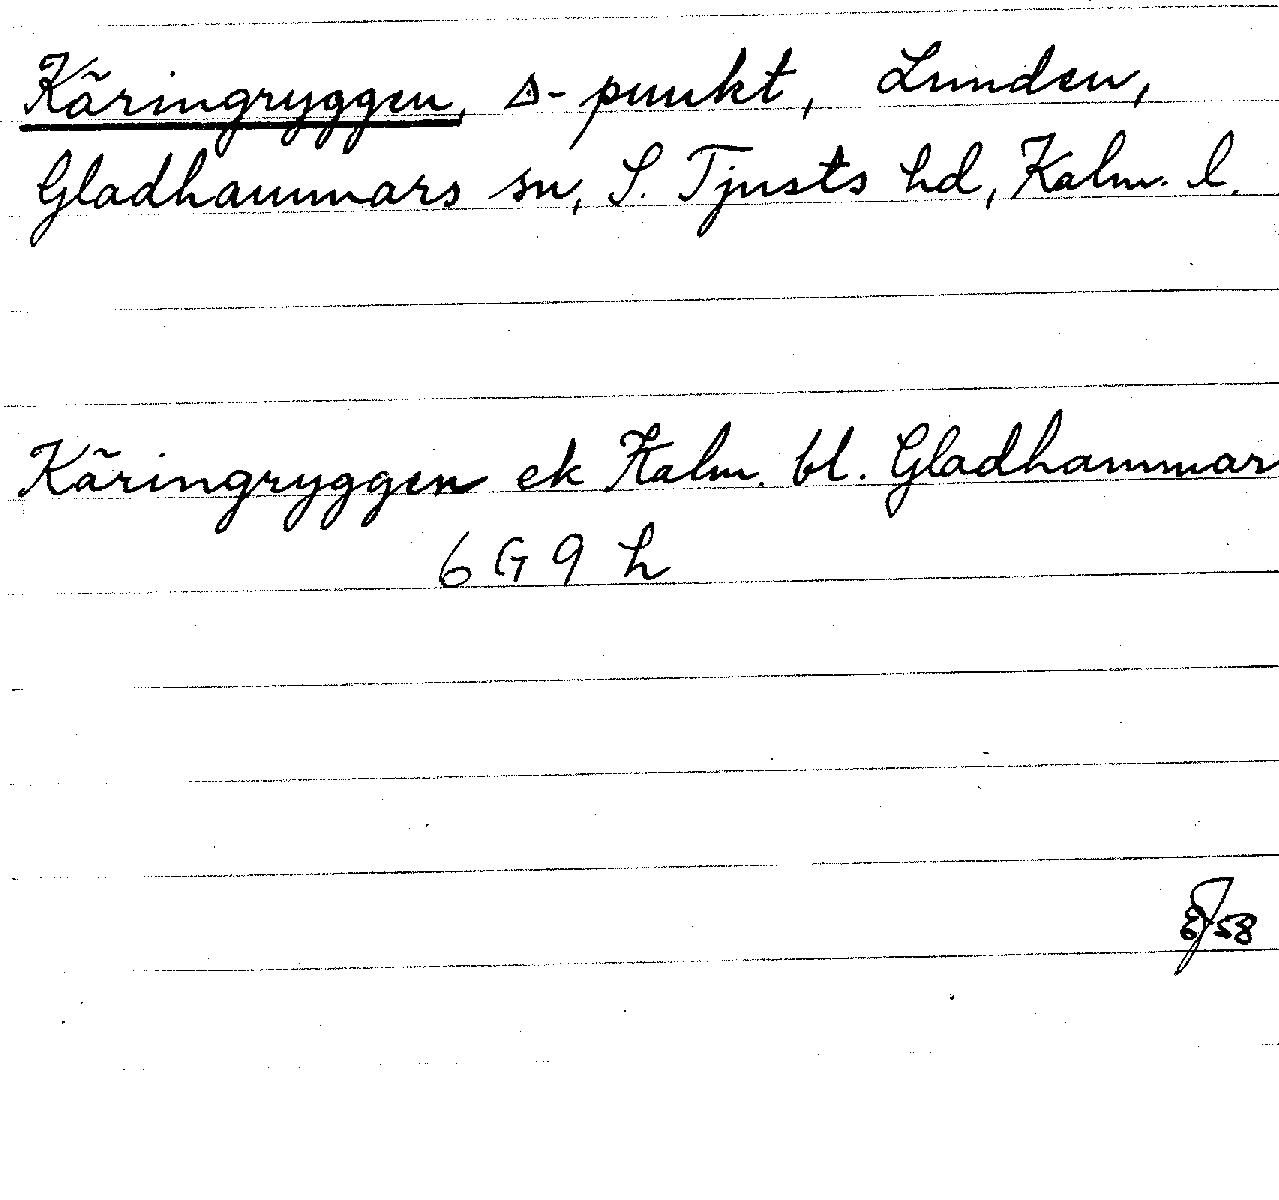 Käringryggen, Δ-punkt, Lunden,
Gladhammars sn, S. Tjusts hd, Kalm. l.
Käringryggen ek Kalm. bl. Gladhammar
6G9h
58